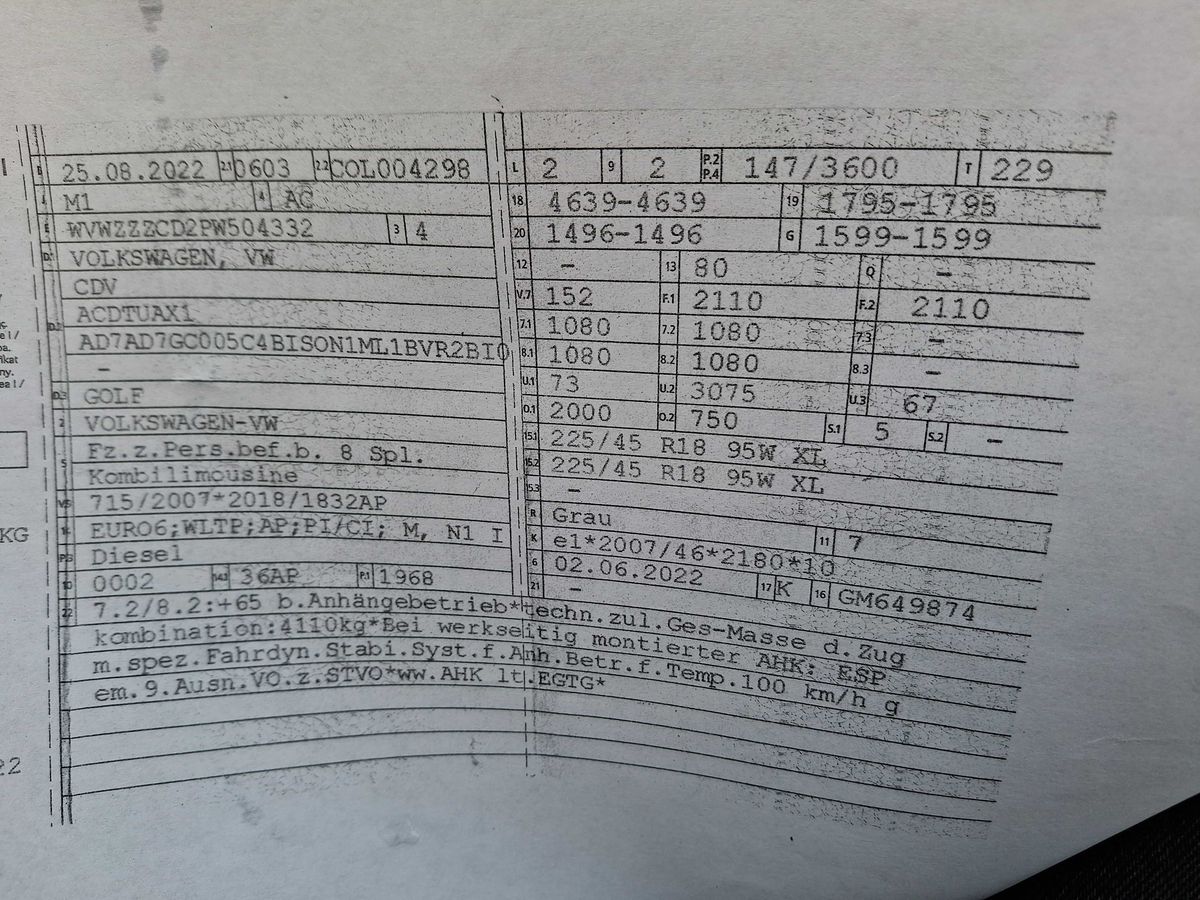 B 25.08.2022 2.1 0603 2.2 COL004298
J M1 4 AC
E WVWZZZCD2PW504332 3 4
D.1 VOLKSWAGEN, VW
CDV
D.2 ACDTUAX1
AD7AD7GC005C4BISON1ML1BVR2BI0
–
D.3 GOLF
2 VOLKSWAGEN-VW
5 Fz.z.Pers.bef.b. 8 Spl.
Kombilimousine
V.9 715/2007*2018/1832AP
14 EURO6;WLTP;AP;PI/CI; M, N1 I
P.3 Diesel
10 0002 14.1 36AP P.1 1968
L 2 9 2 P.2 P.4 147/3600 T 229
18 4639-4639 19 1795-1795
20 1496-1496 G 1599-1599
12 – 13 80 Q –
V.7 152 F.1 2110 F.2 2110
7.1 1080 7.2 1080 7.3 –
8.1 1080 8.2 1080 8.3 –
U.1 73 U.2 3075 U.3 67
O.1 2000 O.2 750 S.1 5 S.2 –
15.1 225/45 R18 95W XL
15.2 225/45 R18 95W XL
15.3 –
R Grau 11 7
K e1*2007/46*2180*10
6 02.06.2022 17 K 16 GM649874
21 –
22 7.2/8.2:+65 b.Anhängebetrieb*techn.zul.Ges-Masse d.Zug
kombination:4110kg*Bei werkseitig montierter AHK: ESP
m.spez.Fahrdyn.Stabi.Syst.f.Anh.Betr.f.Temp.100 km/h g
em.9.Ausn.VO.z.STVO*ww.AHK lt.EGTG*
KG
22